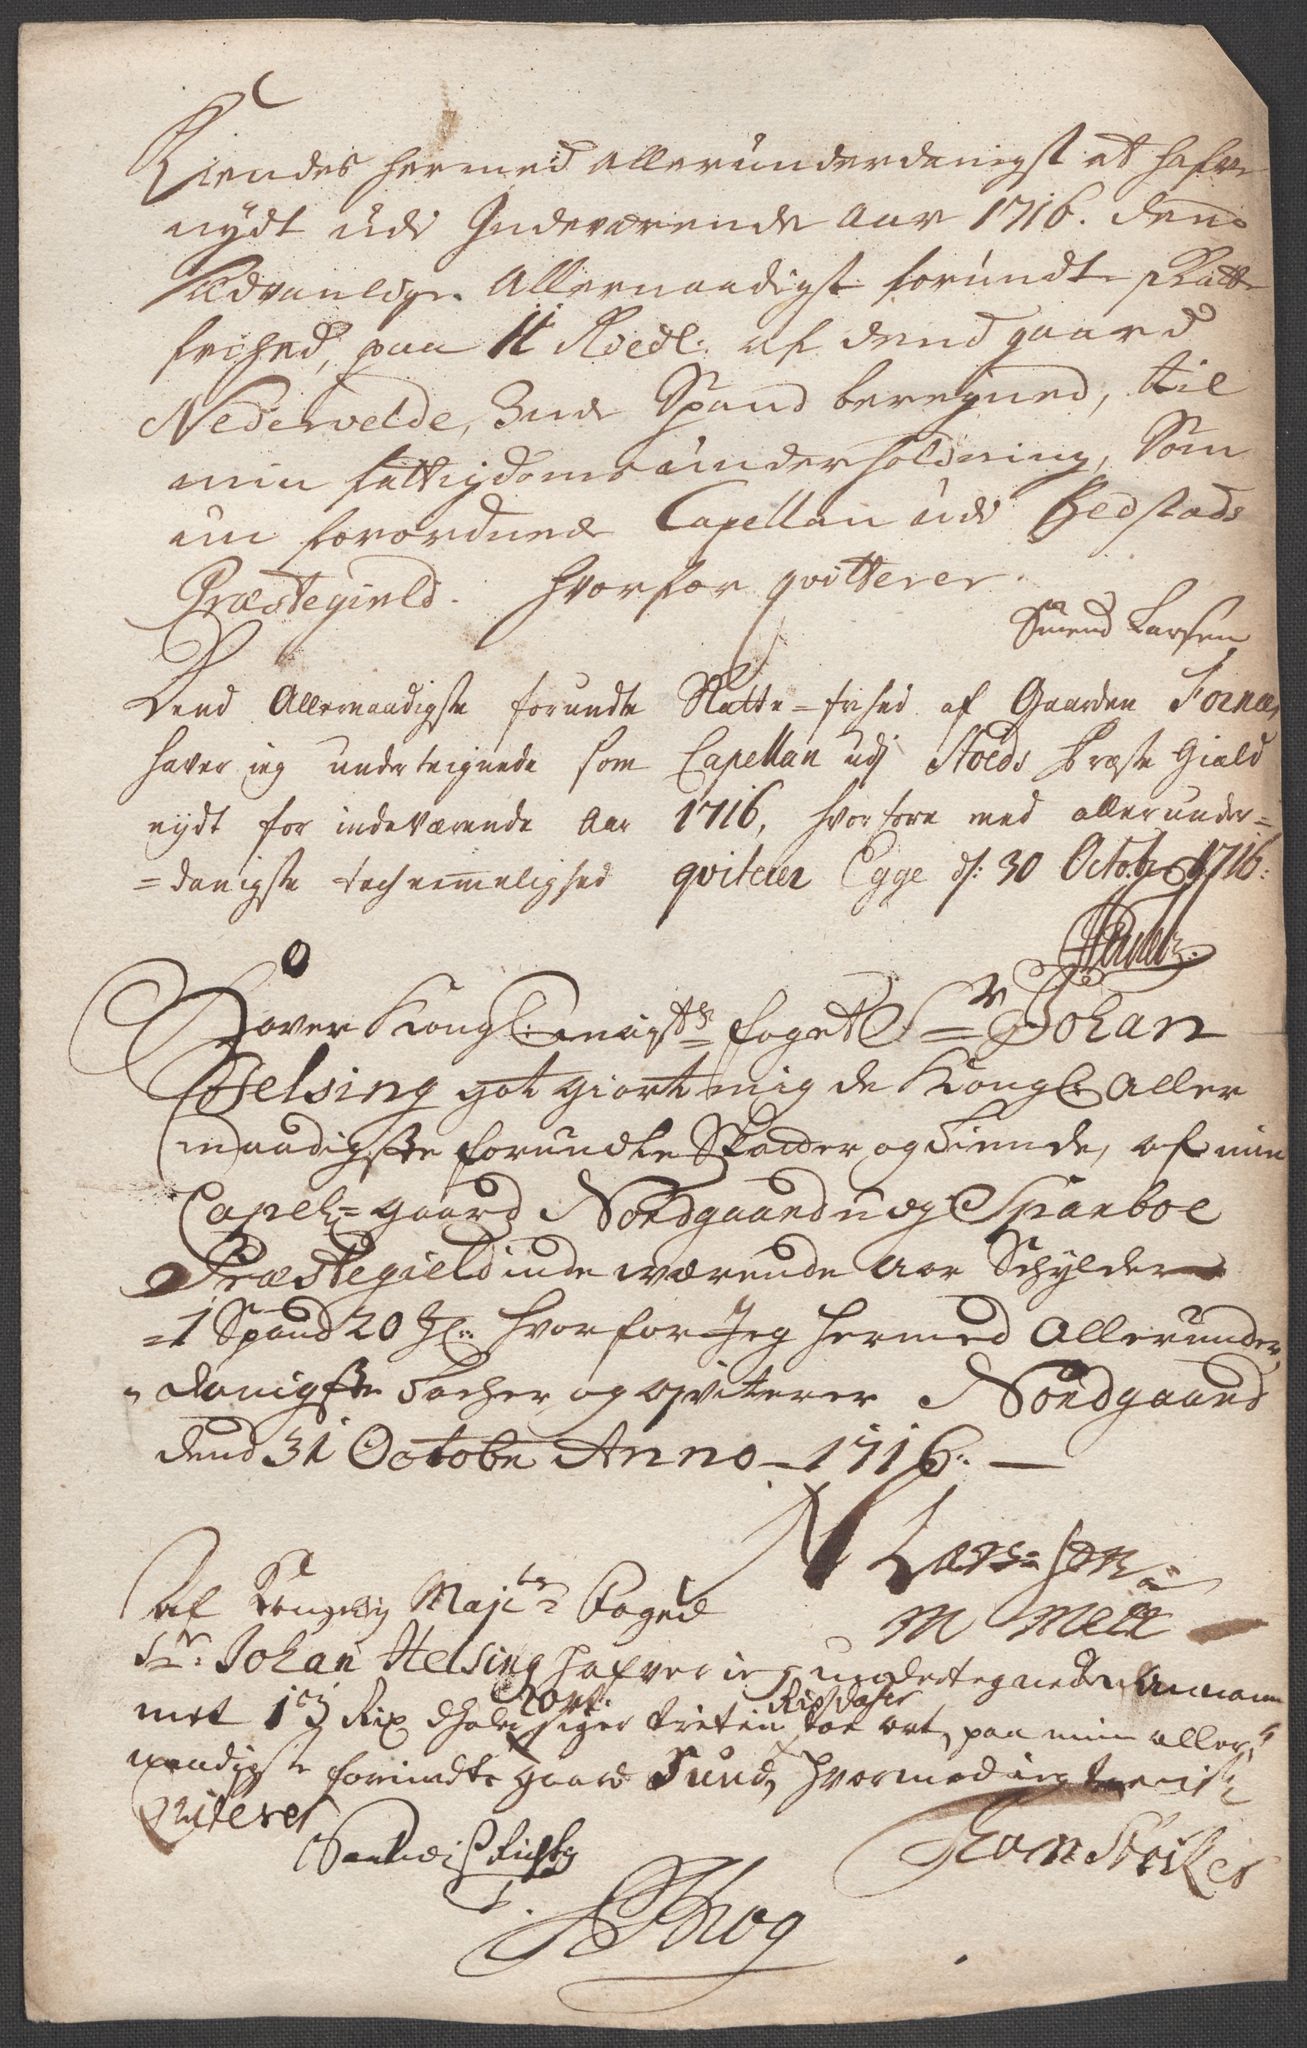 Kiendes hermed allerunderdanigst at hafve
nydt udi Indeværende Aar 1716. den
sædvanlige Allernaadigst forundte skatte
frihed, paa af dend gaard
Nedervelde, Spand beregned, til
min fattigdoms underholdning, som
en forordned Capellan udi Bedstads
Præstegield. Hvorfor qvitterer.
Svend Larsen
Dend Allernaadigste forundte Skatte-frihed af Gaarden Fornæs
haver ieg underteignede som Capellan udj Stoeds Præste Giæld
nydt for indeværende Aar 1716, hvorfore med allerunder=
=danigste tachnemmelighed qviterer Egge d: 30 Octobr 1716:
Hafver Kongl: Mayts foget Sr Johan
Helsing got giort mig de Kongl: Aller
naadigste forundte Skatter og Tiende, af min
Capel= gaard Nordgaard udj Sparboe
Præstegield inde werende Aar Schylder
=1 Spand 20 hvorfor Jeg hermed Allerunder
danigste Tacher og qviterer Nordgaard
dend 31 Octobr Anno - 1716. —
N Lars:sen
M Mell
Af Kongelig Majts Foged
Sr. Johan Helsing hafver ieg undertegnede
met 13 Rix dhaler 2 ort. siger tretten Rixdaler toe ort, paa min aller
naadigste forundte gaard Sund, hvormed ieg
Qviterer